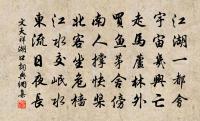 江湖一都會
宇宙幾興亡
走馬蘆林外
買魚茅舍傍
南人撐快槳
北客坐危檣
江水交岷水
東流日夜長
文天祥湖口詞典網書